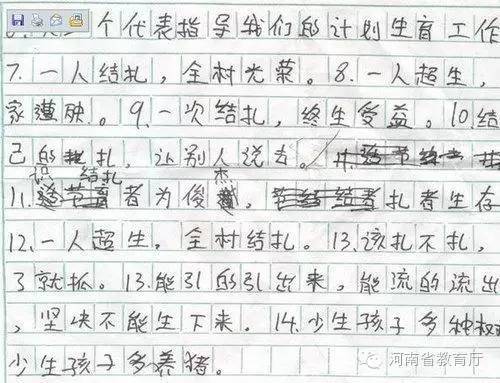 个代表指导我们的计划生育工作
7.一人结扎，全村光荣。8.一人超生，
家遭殃。9.一次结扎，终生受益。10.结
己的扎，让别人说去。
识 结扎 杰
11.者为俊，扎者生存
12.一人超生，全村结扎。13.该扎不扎，
了就抓。13.能引的引出来，能流的流出
，坚决不能生下来。14.少生孩子多种树
少生孩子多养猪。
河南省教育厅